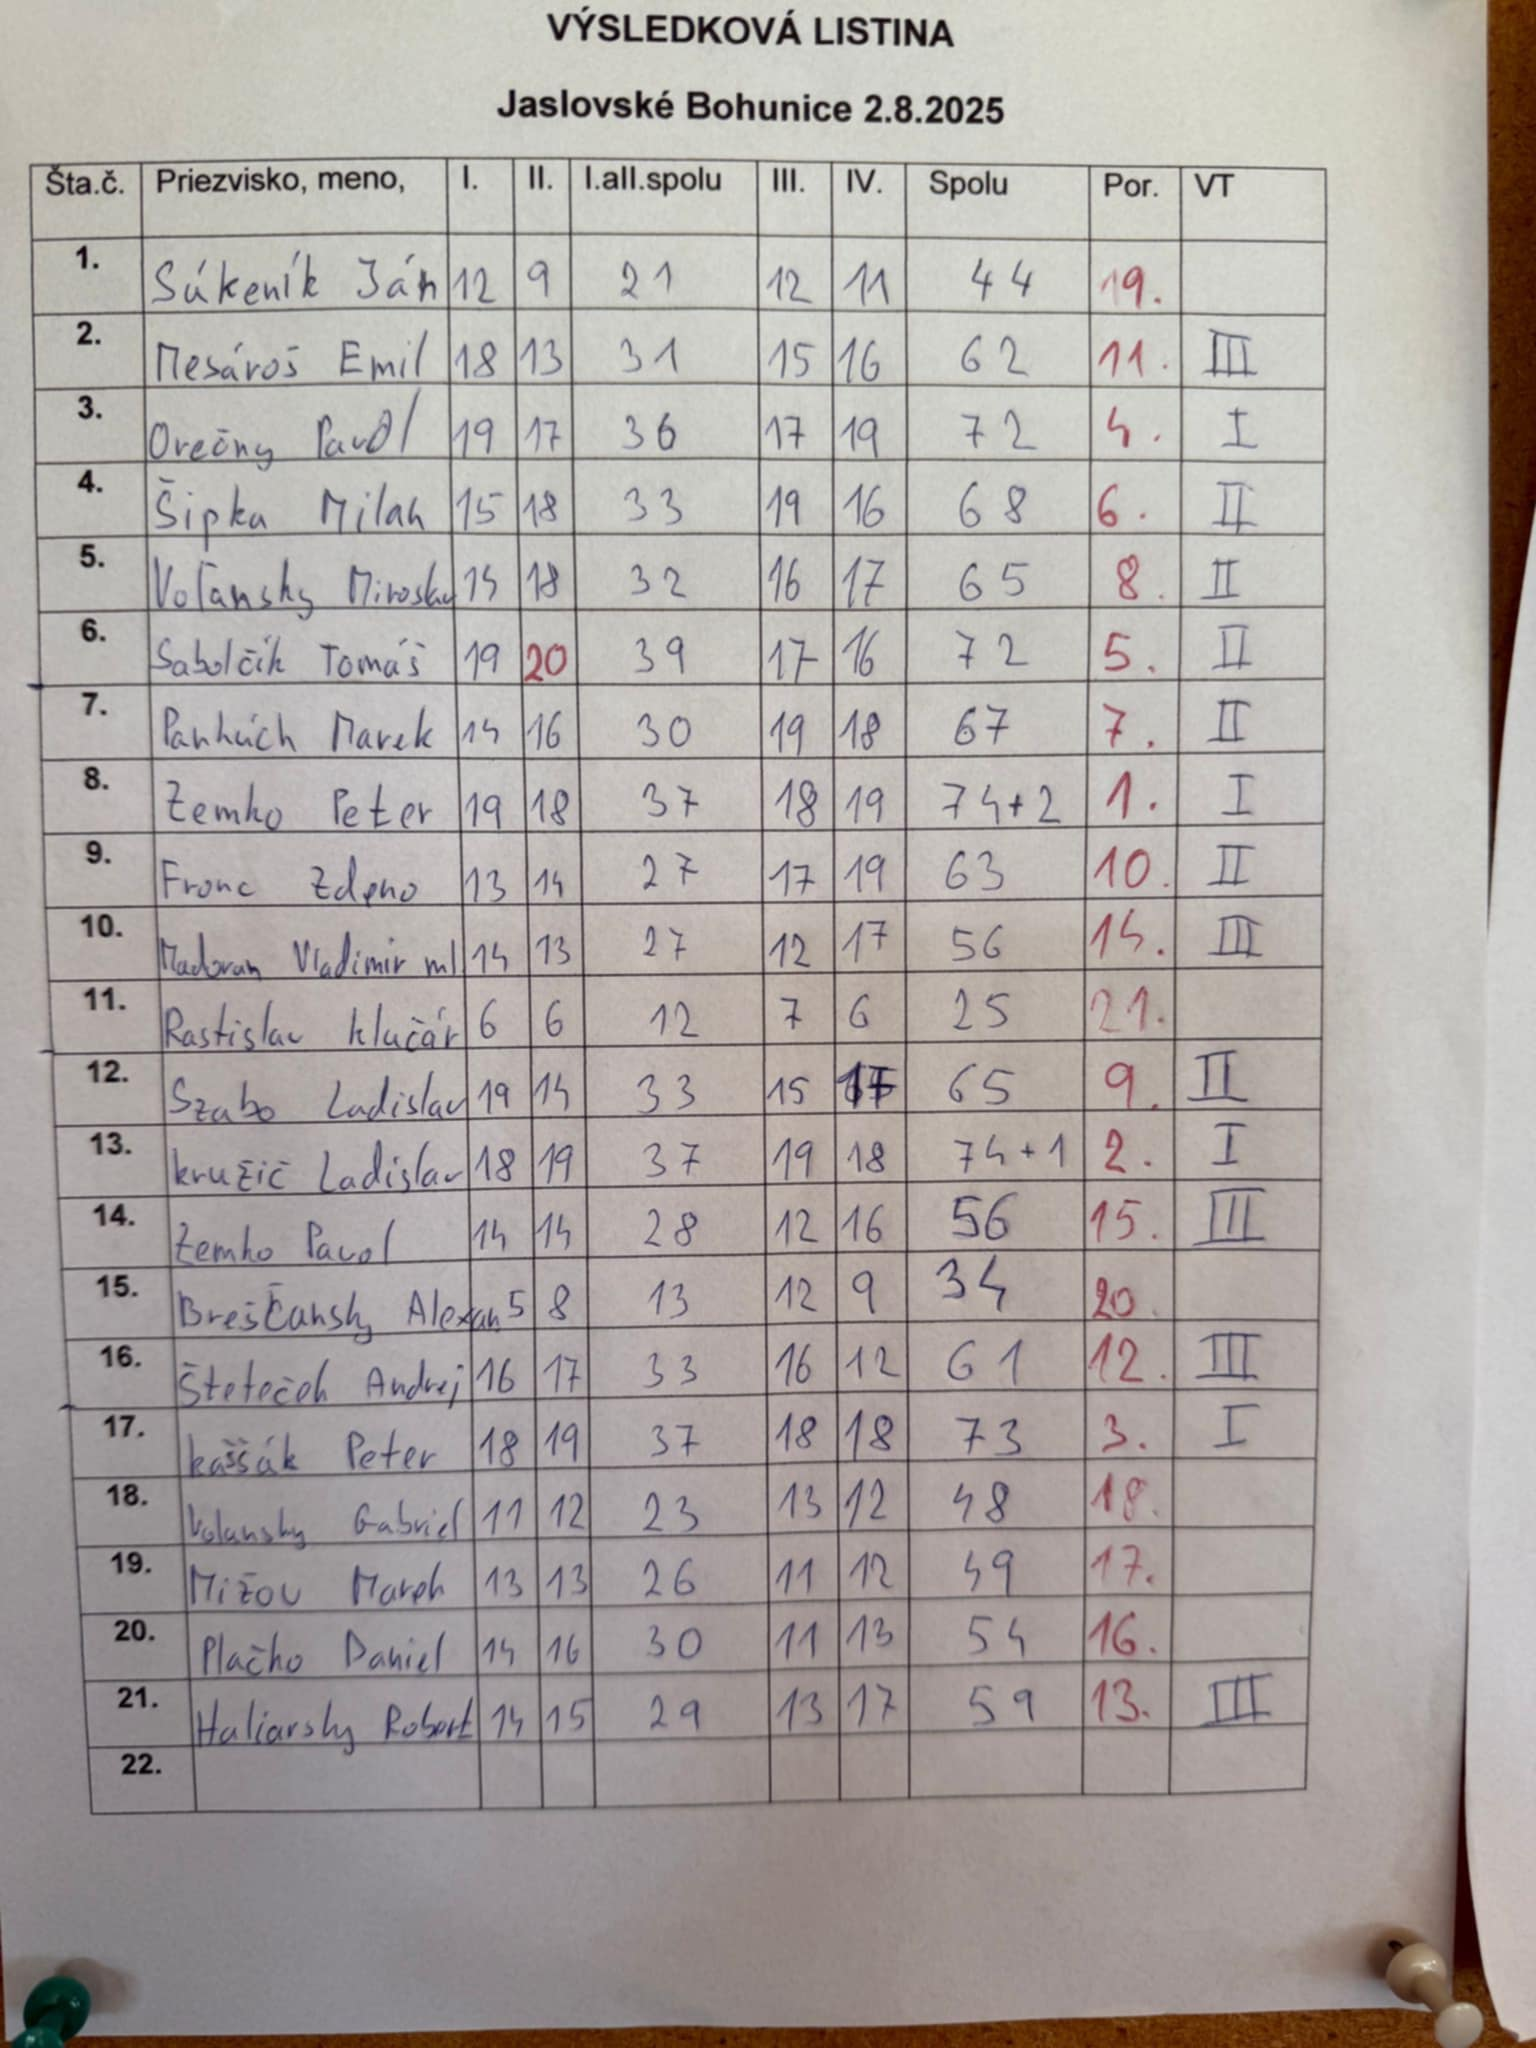 VÝSLEDKOVÁ LISTINA
Jaslovské Bohunice 2.8.2025
Šta.č. Priezvisko, meno, I. II. I.aII.spolu III. IV. Spolu Por. VT
1. Súkeník Ján 12 9 21 12 11 44 19.
2. Mesároš Emil 18 13 31 15 16 62 11. III
3. Orečny Pavol 19 17 36 17 19 72 4. I
4. Šipka Milan 15 18 33 19 16 68 6. II
5. Voľansky Miroslav 14 18 32 16 17 65 8. II
6. Sabolčík Tomáš 19 20 39 17 16 72 5. II
7. Panhúch Marek 14 16 30 19 18 67 7. II
8. Zemko Peter 19 18 37 18 19 74+2 1. I
9. Fronc Zdeno 13 14 27 17 19 63 10. II
10. Madoran Vladimir ml 14 13 27 12 17 56 14. III
11. Rastislav Klučár 6 6 12 7 6 25 21.
12. Szabo Ladislav 19 14 33 15 17 65 9. II
13. Kružič Ladislav 18 19 37 19 18 74+1 2. I
14. Zemko Pavol 14 14 28 12 16 56 15. III
15. Breščansky Alexan 5 8 13 12 9 34 20.
16. Štetečoh Andrej 16 17 33 16 12 61 12. III
17. Kaššák Peter 18 19 37 18 18 73 3. I
18. Volansky Gabriel 11 12 23 13 12 48 18.
19. Mižou Mareh 13 13 26 11 12 49 17.
20. Plačko Daniel 14 16 30 11 13 54 16.
21. Haliarsky Robert 14 15 29 13 17 59 13. III
22.